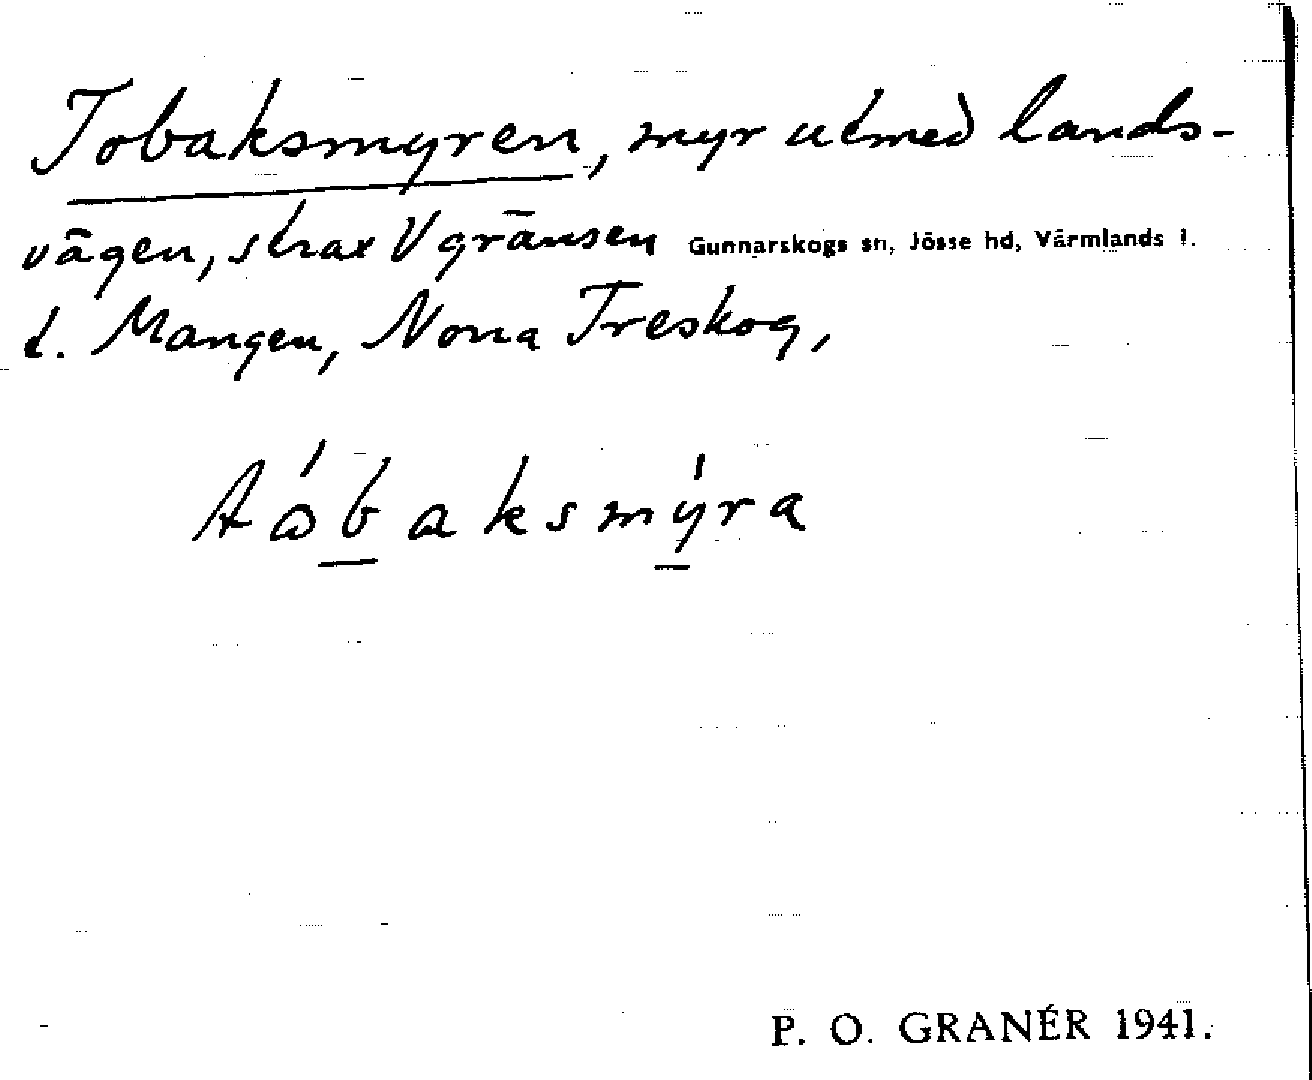 Tobaksmyren, myr utmed lands-
vägen, strax V gränsen Gunnarskogs sn, Jösse hd, Värmlands l.
t. Mangen, Norra Treskog,
tåbaksmýra
P. O. GRANÉR 1941.